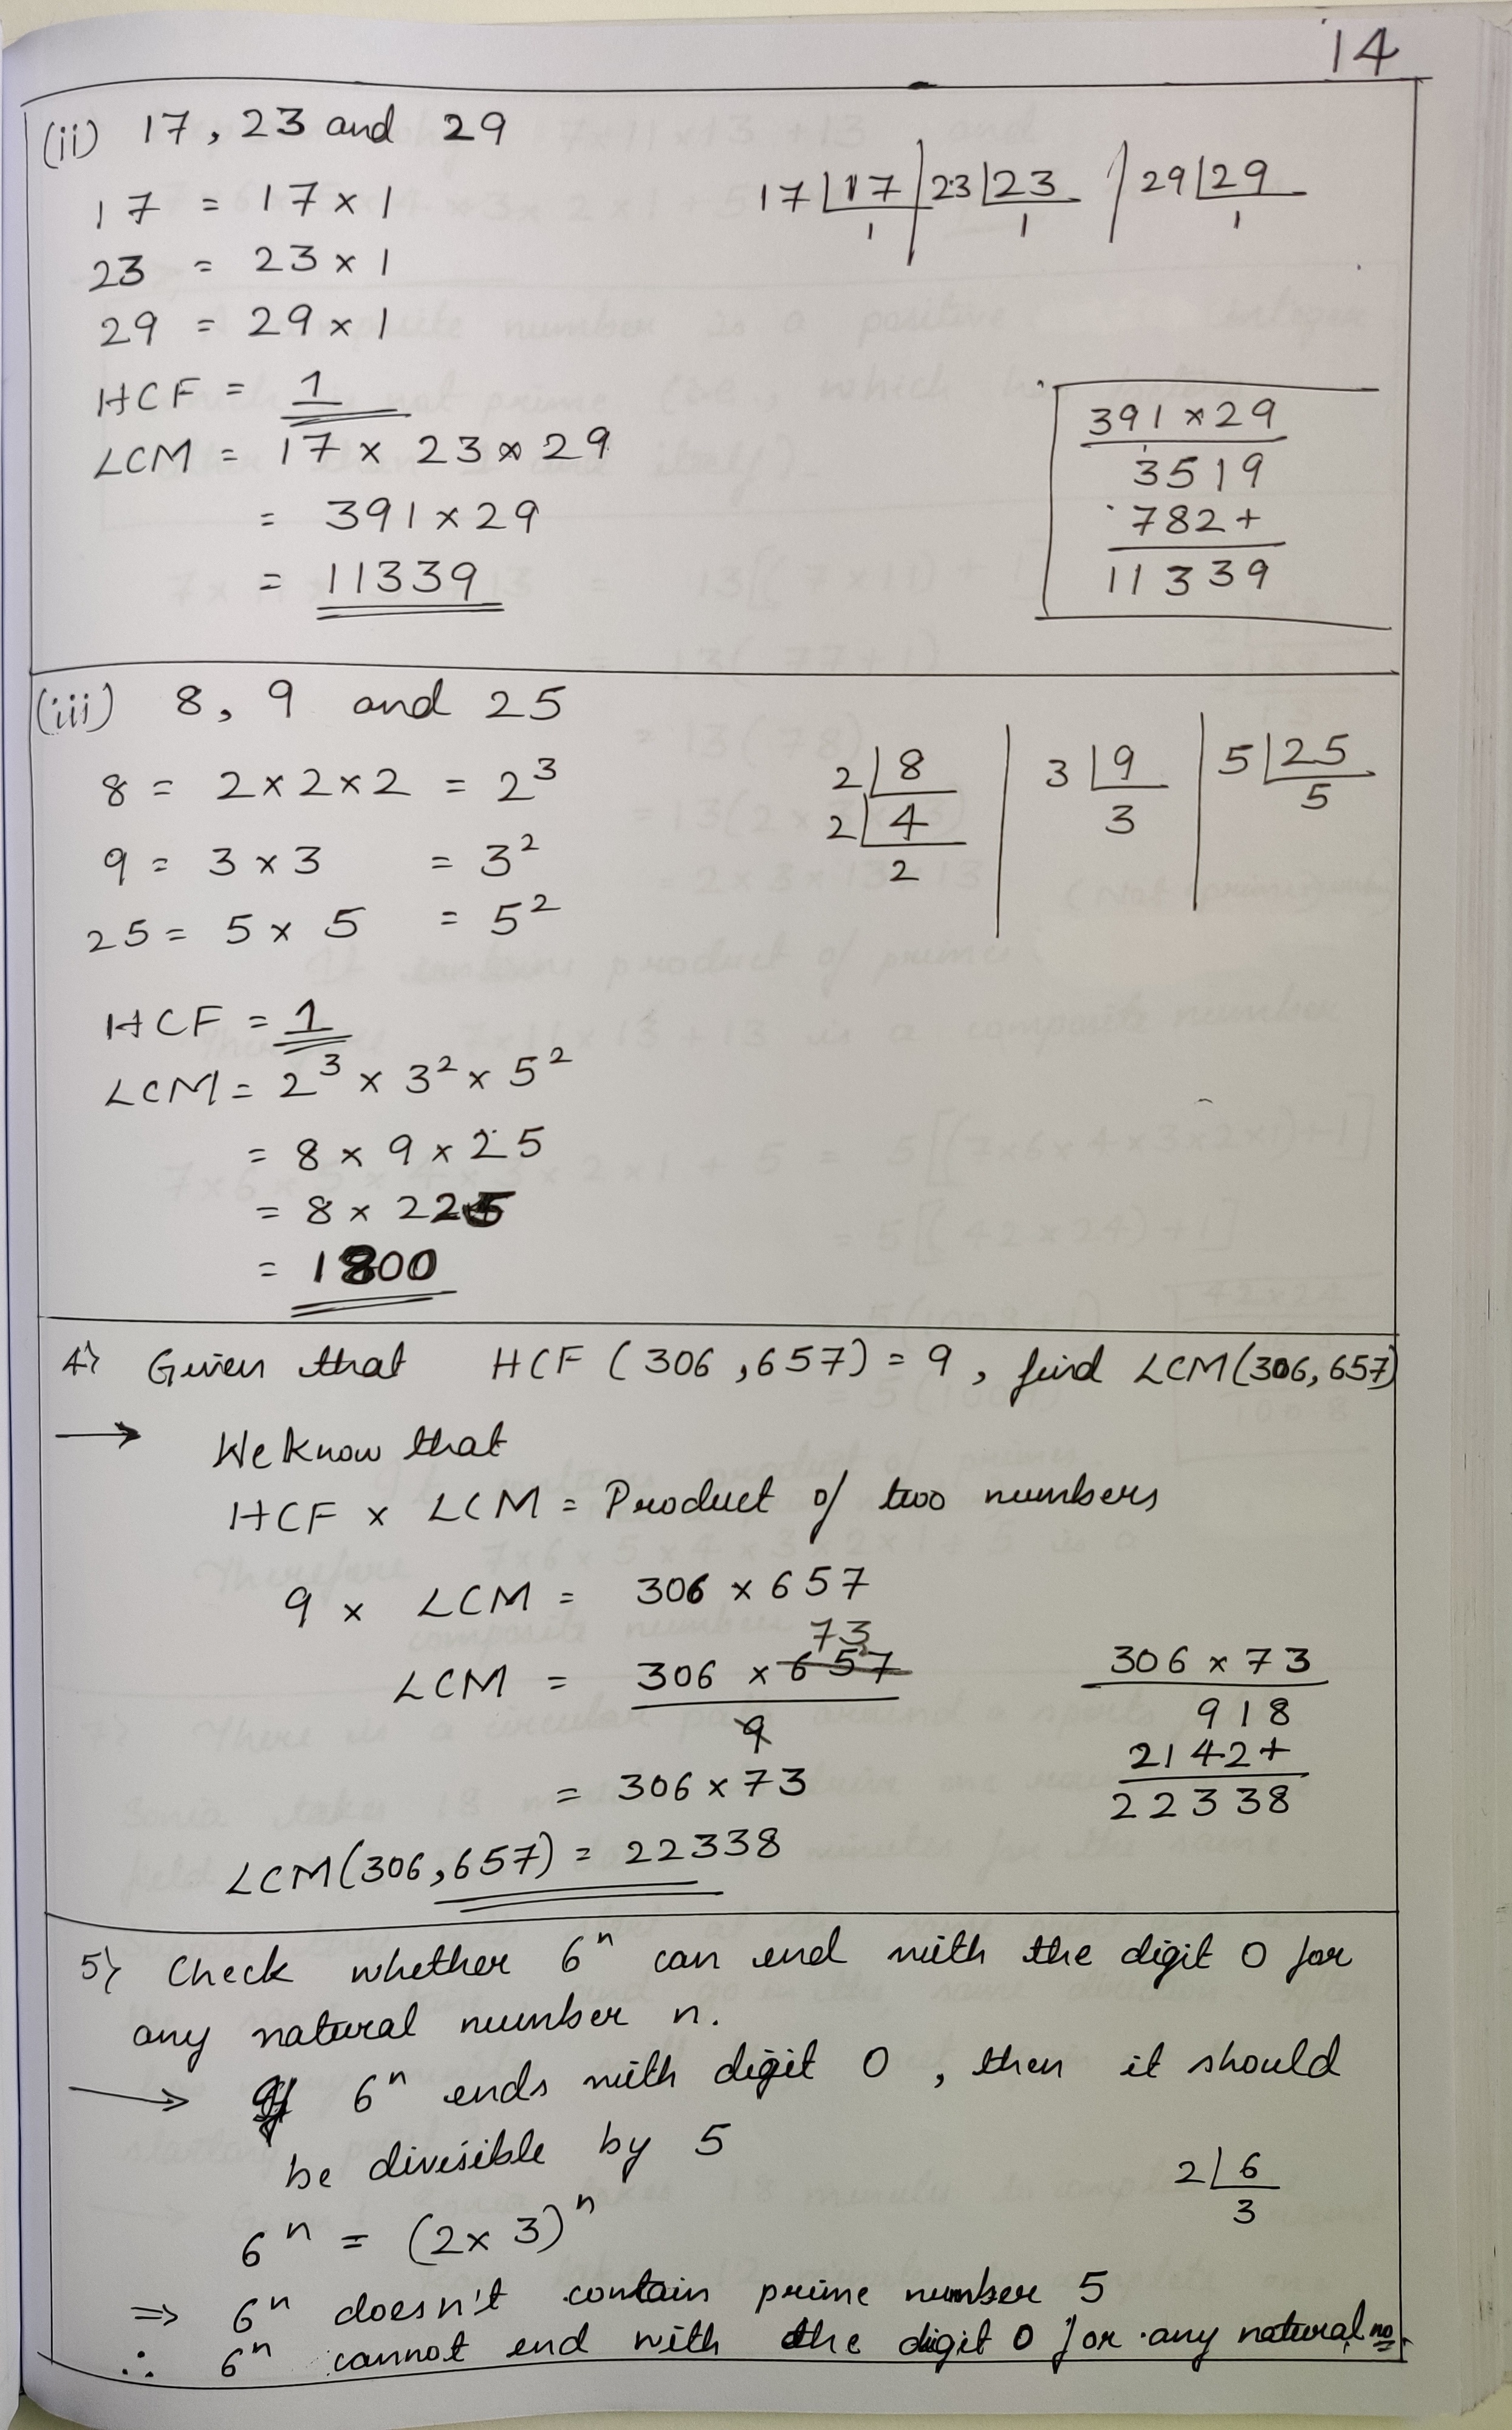 14
(ii) 17, 23 and 29
17 = 17 × 1
23 = 23 × 1
29 = 29 × 1
17 | 17 | 23 | 23 | 29 | 29
1 1 1
HCF = 1
LCM = 17 × 23 × 29
= 391 × 29
= 11339
391 × 29
3519
782+
11339
(iii) 8, 9 and 25
8 = 2 × 2 × 2 = 2³
9 = 3 × 3 = 3²
25 = 5 × 5 = 5²
2 | 8
2 | 4
2
3 | 9
3
5 | 25
5
HCF = 1
LCM = 2³ × 3² × 5²
= 8 × 9 × 25
= 8 × 225
= 1800
4) Given that HCF (306, 657) = 9, find LCM(306, 657)
→ We know that
HCF × LCM = Product of two numbers
9 × LCM = 306 × 657
73
LCM = 306 × 657
9
= 306 × 73
LCM(306, 657) = 22338
306 × 73
918
2142+
22338
5) Check whether 6ⁿ can end with the digit 0 for
any natural number n.
→ If 6ⁿ ends with digit 0, then it should
be divisible by 5
6ⁿ = (2 × 3)ⁿ
2 | 6
3
⇒ 6ⁿ doesn't contain prime number 5
∴ 6ⁿ cannot end with the digit 0 for any natural no.